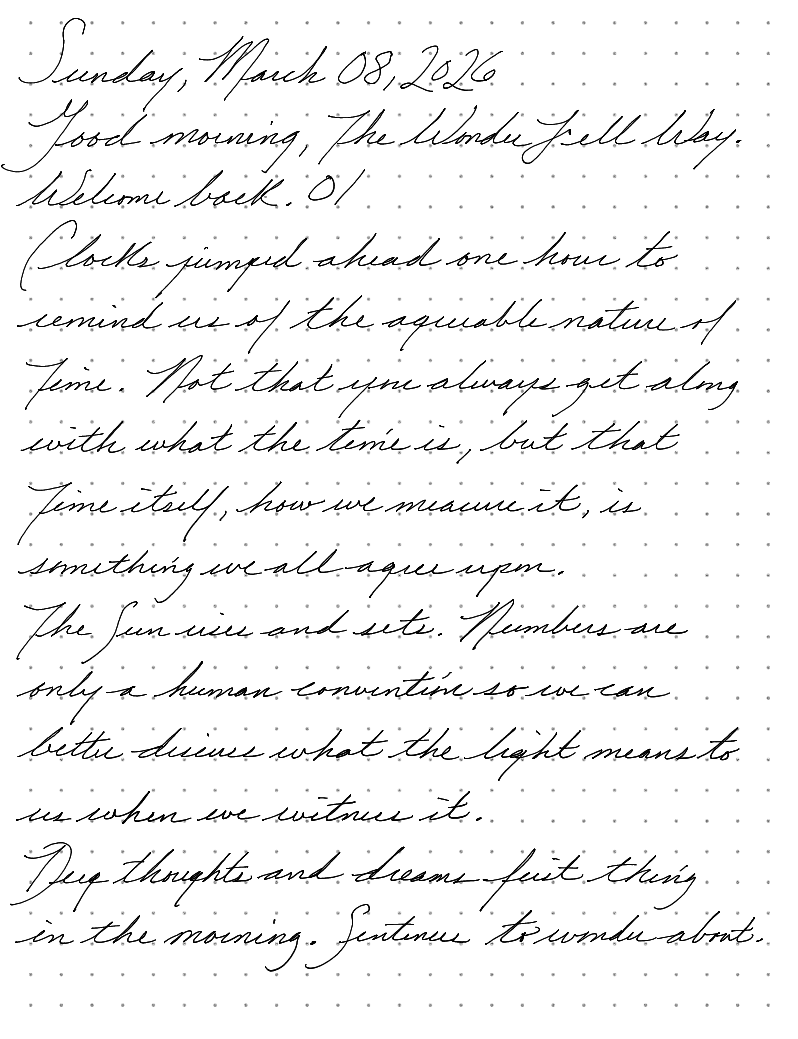 Sunday, March 08, 2026
Good morning, The Wonder Fell Way.
Welcome back. 01
Clocks jumped ahead one hour to
remind us of the agreeable nature of
Time. Not that you always get along
with what the time is, but that
Time itself, how we measure it, is
something we all agree upon.
The Sun rises and sets. Numbers are
only a human convention so we can
better discuss what the light means to
us when we witness it.
Deep thoughts and dreams first thing
in the morning. Sentences to wonder about.